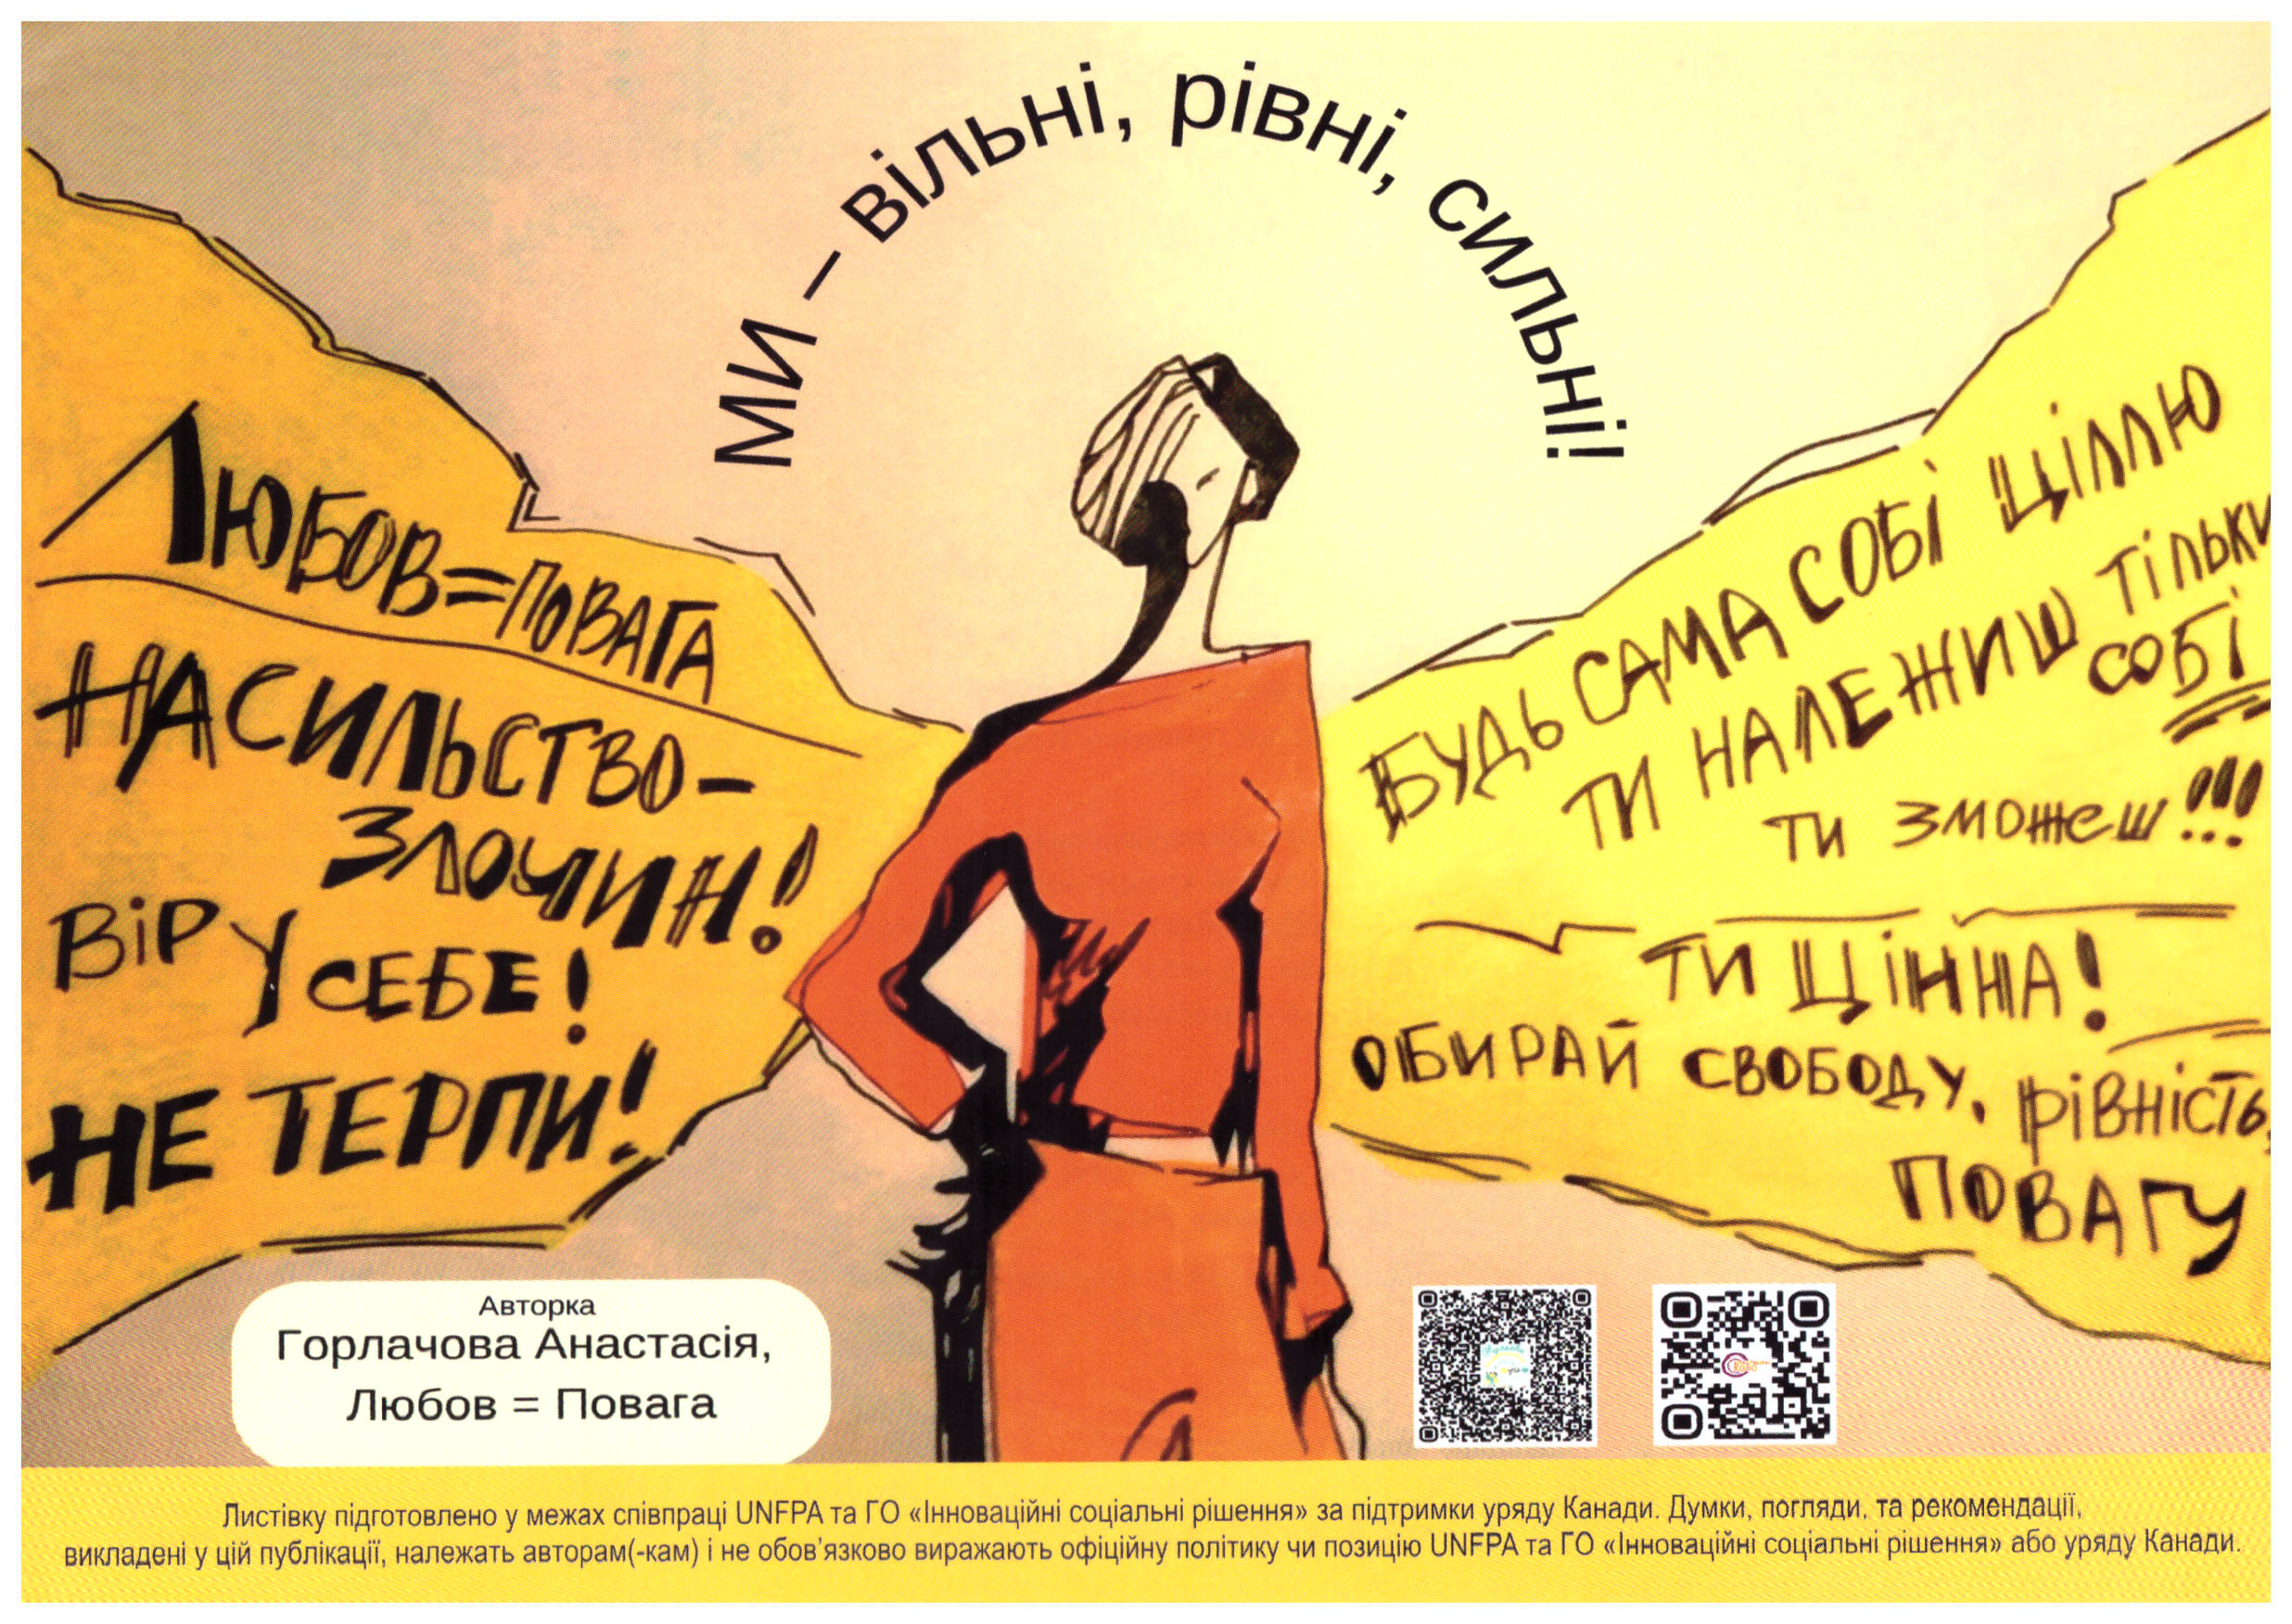 ми – вільні, рівні, сильні!
ЛЮБОВ=ПОВАГА
НАСИЛЬСТВО-
ЗЛОЧИН!
ВІР У СЕБЕ!
НЕ ТЕРПИ!
БУДЬ САМА СОБІ ЦІЛЛЮ
ТИ НАЛЕЖИШ ТІЛЬКИ
СОБІ
ТИ ЗМОЖЕШ!!!
ТИ ЦІННА!
ОБИРАЙ СВОБОДУ, РІВНІСТЬ,
ПОВАГУ
Авторка
Горлачова Анастасія,
Любов = Повага
Листівку підготовлено у межах співпраці UNFPA та ГО «Інноваційні соціальні рішення» за підтримки уряду Канади. Думки, погляди, та рекомендації,
викладені у цій публікації, належать авторам(-кам) і не обов’язково виражають офіційну політику чи позицію UNFPA та ГО «Інноваційні соціальні рішення» або уряду Канади.